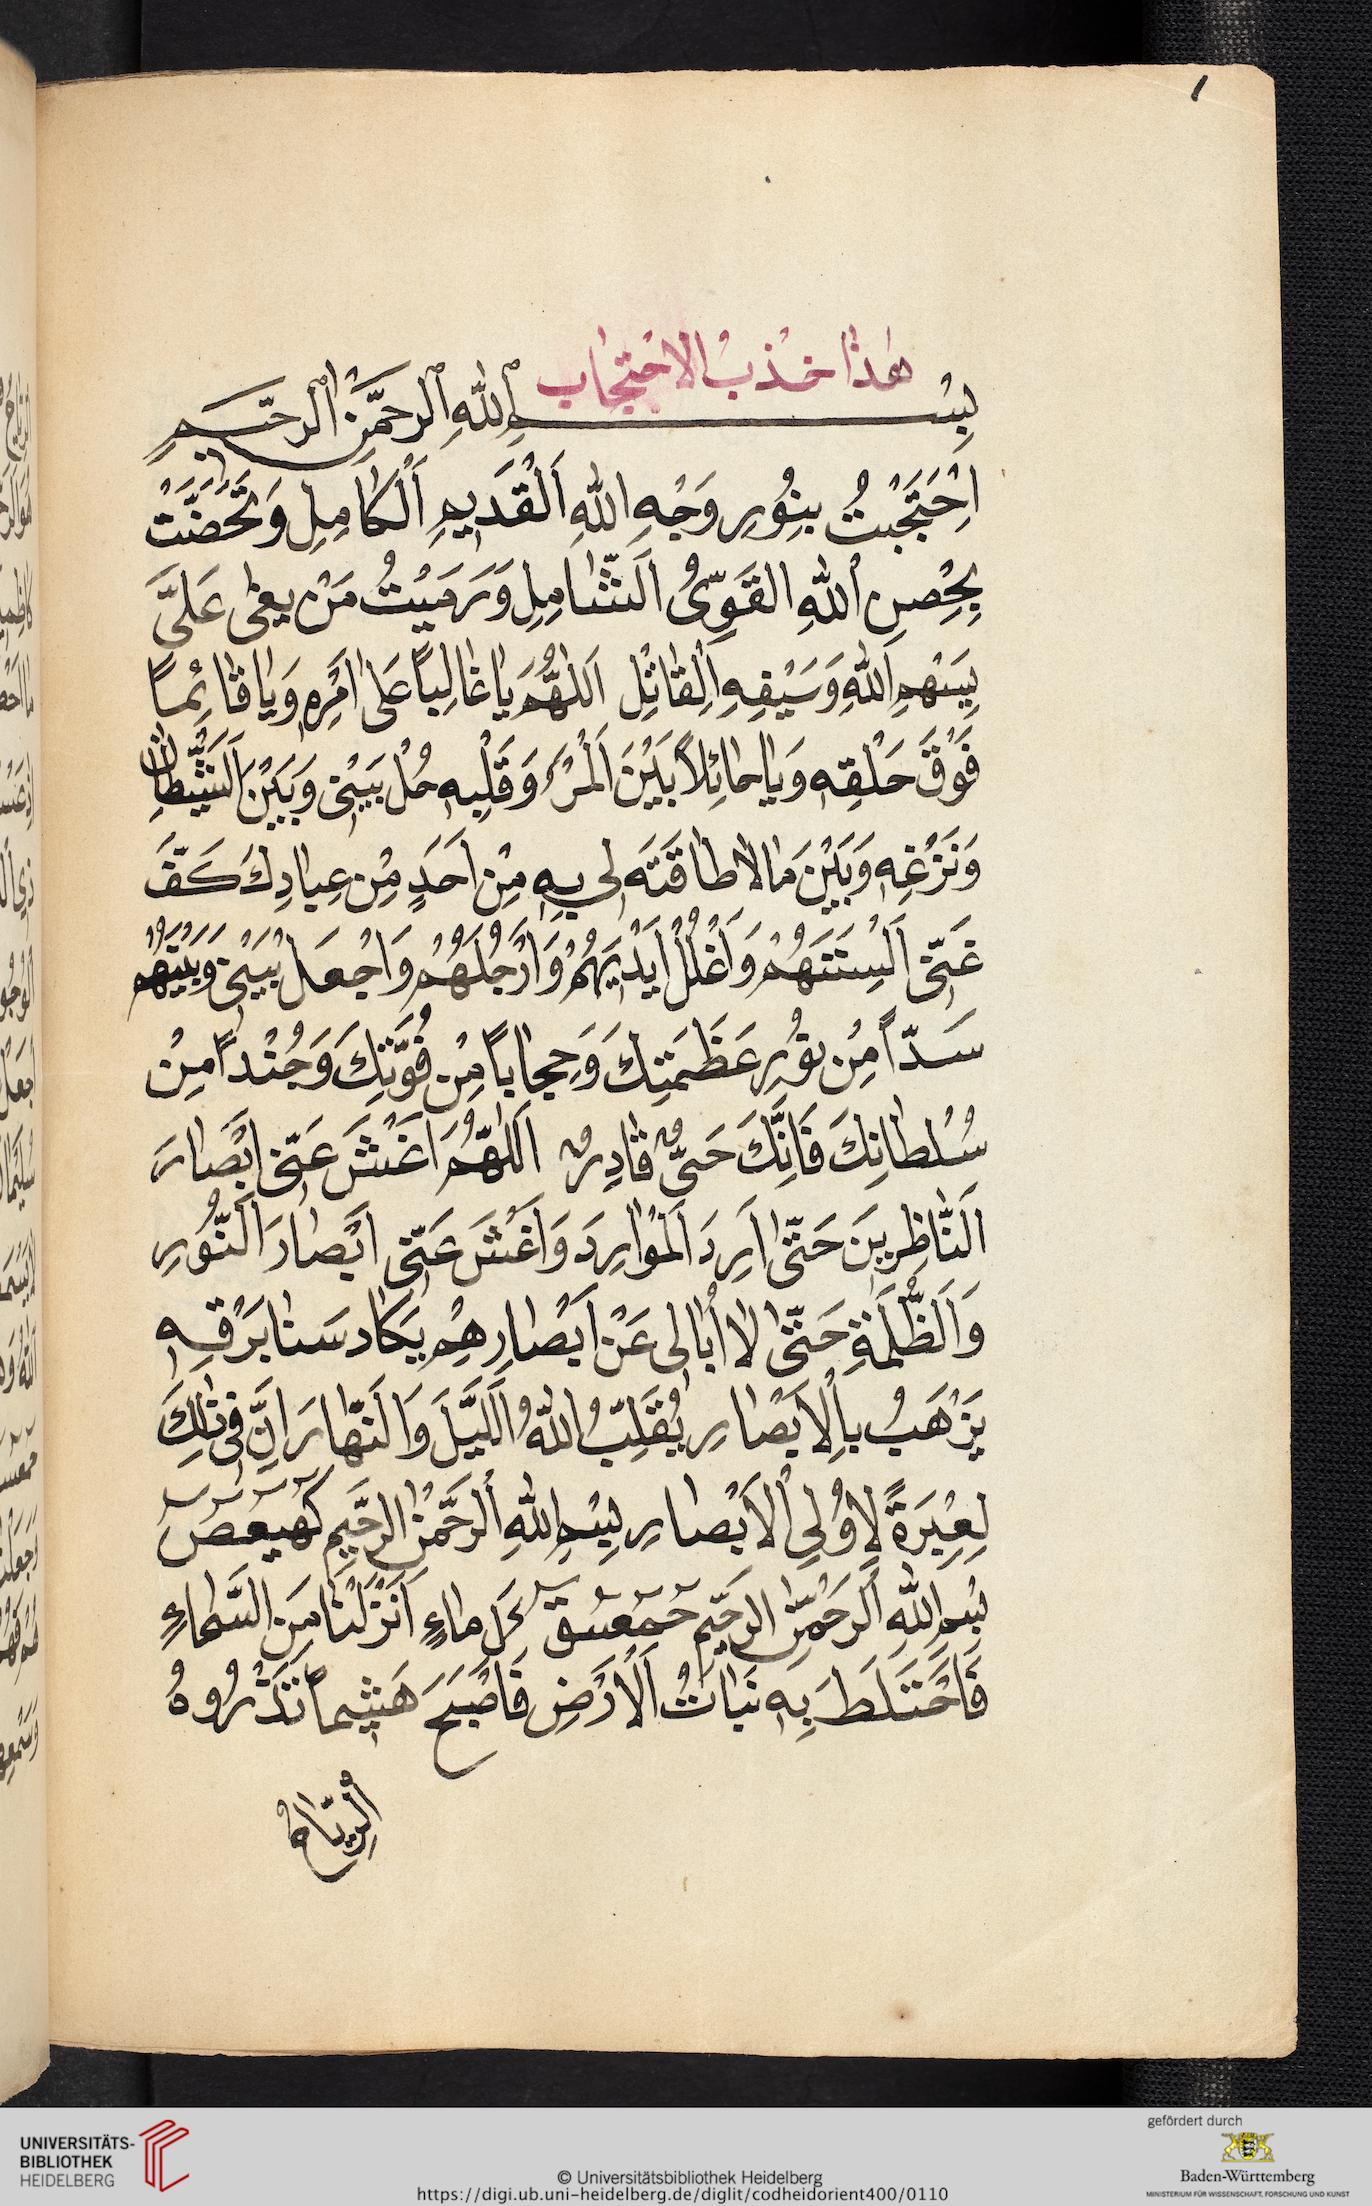 ١
هٰذا حذب الاحتجاب
بِسْمِ اللّٰهِ الرَّحْمٰنِ الرَّحِيمِ
اِحْتَجَبْتُ بِنُورِ وَجْهِ اللّٰهِ اَلْقَدِيمِ اَلْكَامِلِ وَتَحَضَّنَتْ
بِحِصْنِ اللّٰهِ القَوِىُّ اَلشَّامِلِ وَرَمَيْتُ مَنْ يغٰى عَلَىَّ
بِسَهْمِ اللّٰهِ وَسَيْفِهِ اَلْقاتِل اَللّٰهُمَّ يا غالِباً عَلٰى اَمْرِهِ وَيا قائِماً
فَوْقَ خَلْقِهِ وَيا حائِلاً بَيْنَ اَلْمَرْءِ وَقَلْبِهِ حُلْ بَيْنِى وَبَيْنَ الشَّيْطانِ
وَنَزْغِهِ وَبَيْنَ مَالا طاقَتَه لِى بِهِ مِنْ اَحَدٍ مِنْ عِبادِكَ كَفَّ
عَنِّى اَلْسِنَتَهُمْ وَاَغْلُلْ اَيْدِيَهُمْ وَاَرْجُلَهُمْ وَاجْعَلْ بَيْنِى وَبَيْنَهُمْ
سَدّاً مِنْ نُورِ عَظَمَتِكَ وَحِجاباً مِنْ قُوَّتِكَ وَجُنْداً مِنْ
سُلْطانِكَ فَاِنَّكَ حَىٌّ قادِرٌ اَللّٰهُمَّ اَغْشَ عَنّى اَبْصارَ
اَلنّاظِرِينَ حَتّٰى اَرِدَ اَلْمَوارِدَ وَاَغْشَ عَنّى اَبْصارَ اَلنُّورِ
وَاَلظُّلْمَةِ حَتّٰى لا اُبالِى عَنْ اَبْصارِهِمْ يَكاد سَنا بَرْقِهِ
يَزْهَبُ بِاَلْاَبْصارِ يُقَلِّبُ اللّٰهُ اَللَّيْلَ وَالنَّهارَ اِنَّ فِى ذٰلِكَ
لَعِبْرَةً لِاُولِى اَلْاَبْصارِ بِسْمِ اللّٰهِ الرَّحْمٰنِ الرَّحِيمِ كٓهٰيٰعٓصٓ
بِسْمِ اللّٰهِ الرَّحْمٰنِ الرَّحِيمِ حٰمٓعٓسٓقٓ كَماءٍ اَنْزَلْناهُ مِنَ السَّماءِ
فَاخْتَلَطَ بِهِ نَباتُ اَلْاَرْضِ فَاَصْبَحَ هَشِيماً تَذْرُوهُ
اَلرِّيّاحُ
UNIVERSITÄTS-
BIBLIOTHEK
HEIDELBERG
© Universitätsbibliothek Heidelberg
https://digi.ub.uni-heidelberg.de/diglit/codheidorient400/0110
gefördert durch
Baden-Württemberg
MINISTERIUM FÜR WISSENSCHAFT, FORSCHUNG UND KUNST